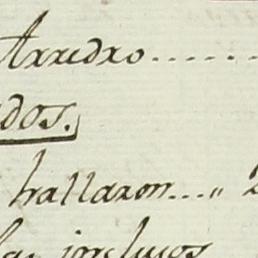 Arredro......
dos.
hallaron....„ 2
las inclusos